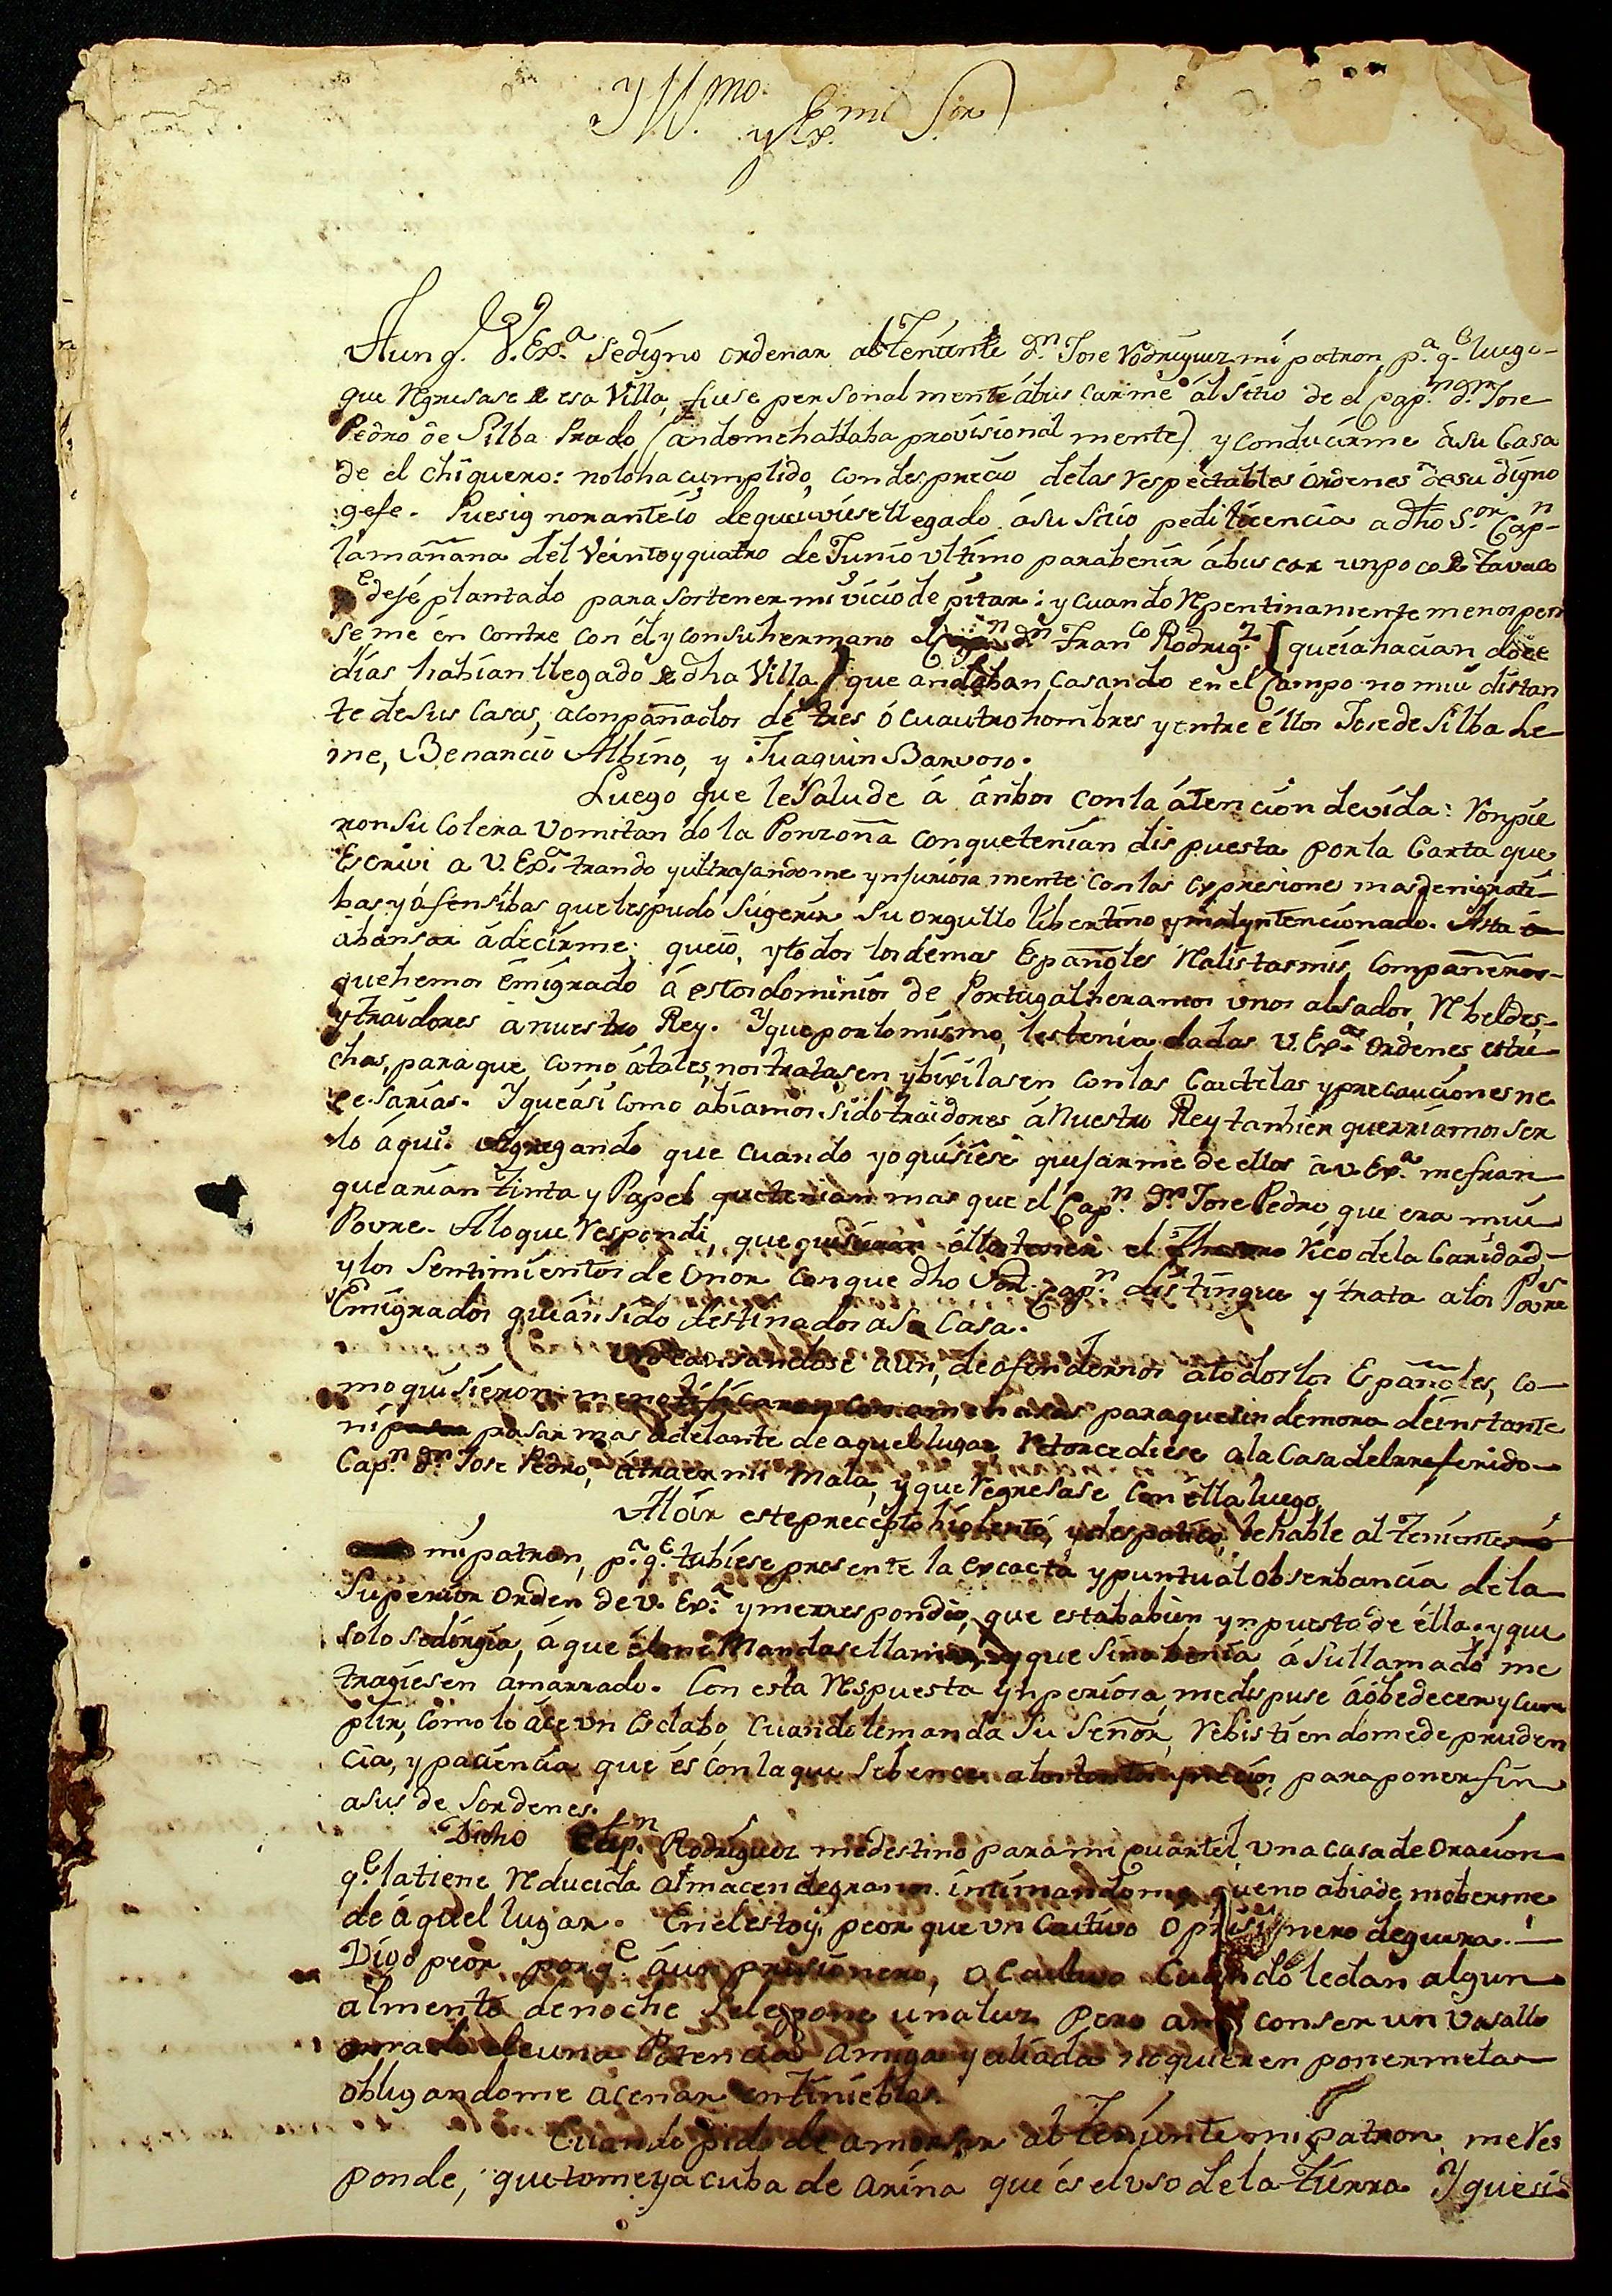 Yllmo.
y Exmo Sor
Aunq. V. Exa. Sedigno ordenar al Teniente Dn. Jose Rodriguez mi patron, pa. qe. luego
que Regresase de esa Villa, fuese personalmente ábuscarme ál Sitio de el Capn. dn. Jose
Pedro de Silba Prado (ándomehallaba provisional mente) y conducirme ásu Casa
de el chiquero: noloha cumplido, con desprecio delas respectables órdenes desu digno
gefe. Puesig norante ió dequeuviesellegado ásu Sitio pedi licencia a dho Sor. Capn.
lamañana del Veintoyquatro de Junio ultimo parabenir ábuscar unpoco de Tavaco
qe deje plantado para Sostener mi vicio de pitar: y cuando Repentinamente menospen
Se me én contre con él y consuhermano el Capn. dn Franco Rodrigz. (queiahacian doce
dias habian llegado de dha Villa) que andaban Casando en el Campo no mui distan
te desus Casas, aconpañados de tres ó cuautrohombres yentre éllos Josede Silba Le-
me, Benancio Albino, y Juaquin Barvoso.
Luego que leSalude á ánbos conla átencion devida: Ronpie
ron Su Colera Vomitando la Ponzoña conquetenian dispuesta porla Carta que
Escrivi a V. Exa. trando yultrajandome ynjuriosa mente conlas Expresiones masdenigrati-
bas y ófensibas quelespudo Sugerir Su orgullo libertino ymalyntencionado. Asta
abansar ádecirme: queió, ytodos losdemas Españoles Realistasmis Compañeros
quehemos émigrado á estosdominios de Portugal heramos unos alsados, Rebeldes,
ytraidores ánuestro Rey. Yqueporlomismo, lestenia dadas V. Exa. ordenes estre
chas, para que como átales, nostratasen ybixilasen conlas Cautelas yprecauciones ne
cesarias. Yqueási como abiamos Sidotraidores áNuestro Rey tanbien querriamos Ser
lo áqui. Agregando que cuando yo quisiese quejarme de ellos áV. Exa. mefran
quearian Tinta y Papel quetenian mas que el Capn. Dn. Jose Pedro que era mui
Povre. Aloque Respondi, que quisieran éllos tener el Thesoro Rico dela Caridad
y los Sentimientos de onor conque dho Sor. Capn. distingue y trata alos Povres
Emigrados queánsido destinados asu Casa.
aun, deofendernos átodoslos Españoles, co-
mo quisieron menotificaron con amenasas paraquesin demora deinstante
ni pasar mas ádelante de aquel lugar Retorcediese ala Casadelrreferido
Capn. dn. Jose Pedro, átraer mi Mala, y que Regresase con élla luego.
Aloir esteprecepto biolento, ydespotico, lehable al Teniente
mipatron, pa. qe. tubiese presente la excacta ypuntual obserbancia dela
Superior Orden de V. Exa. ymerrespondio, que estababien ynpuesto de élla. y que
Solo Sedirigia, á que él me Mandasellamar, y que Sino benia á Sullamado me
tragiesen ámarrado. Con esta Respuesta ynperiosa, medispuse áobedecer y Cum
plir, cómo lo áce un Esclabo, cuandolemanda Su Señor, Rebistiendomede pruden
cia, y paciencia que és conlaque Sebence alostontos ynecios, paraponerfin
asus desordenes.
Dicho Capn. Rodriguez medestino paramiquartel, una casade Oracion
qe. latiene Reducida álmacen degranos. intimandome queno abiade moberme
de áquel lugar. Enelestoy, peor que un Cautivo o prisionero deguerra.
Digo peor porqe. áun prisionero, o Cautivo Cuando ledan algun
álmento denoche Selepone unaluz. Pero ami conser un Vasallo
onrado deuna Potencia Amiga y aliada noquieren ponermela
obligandome acenar entinieblas.
Cuando pido de amorsar al Teniente mipatron, meRes
ponde, quetomeya cuba de arina que és eluso dela Tierra. Yquesi